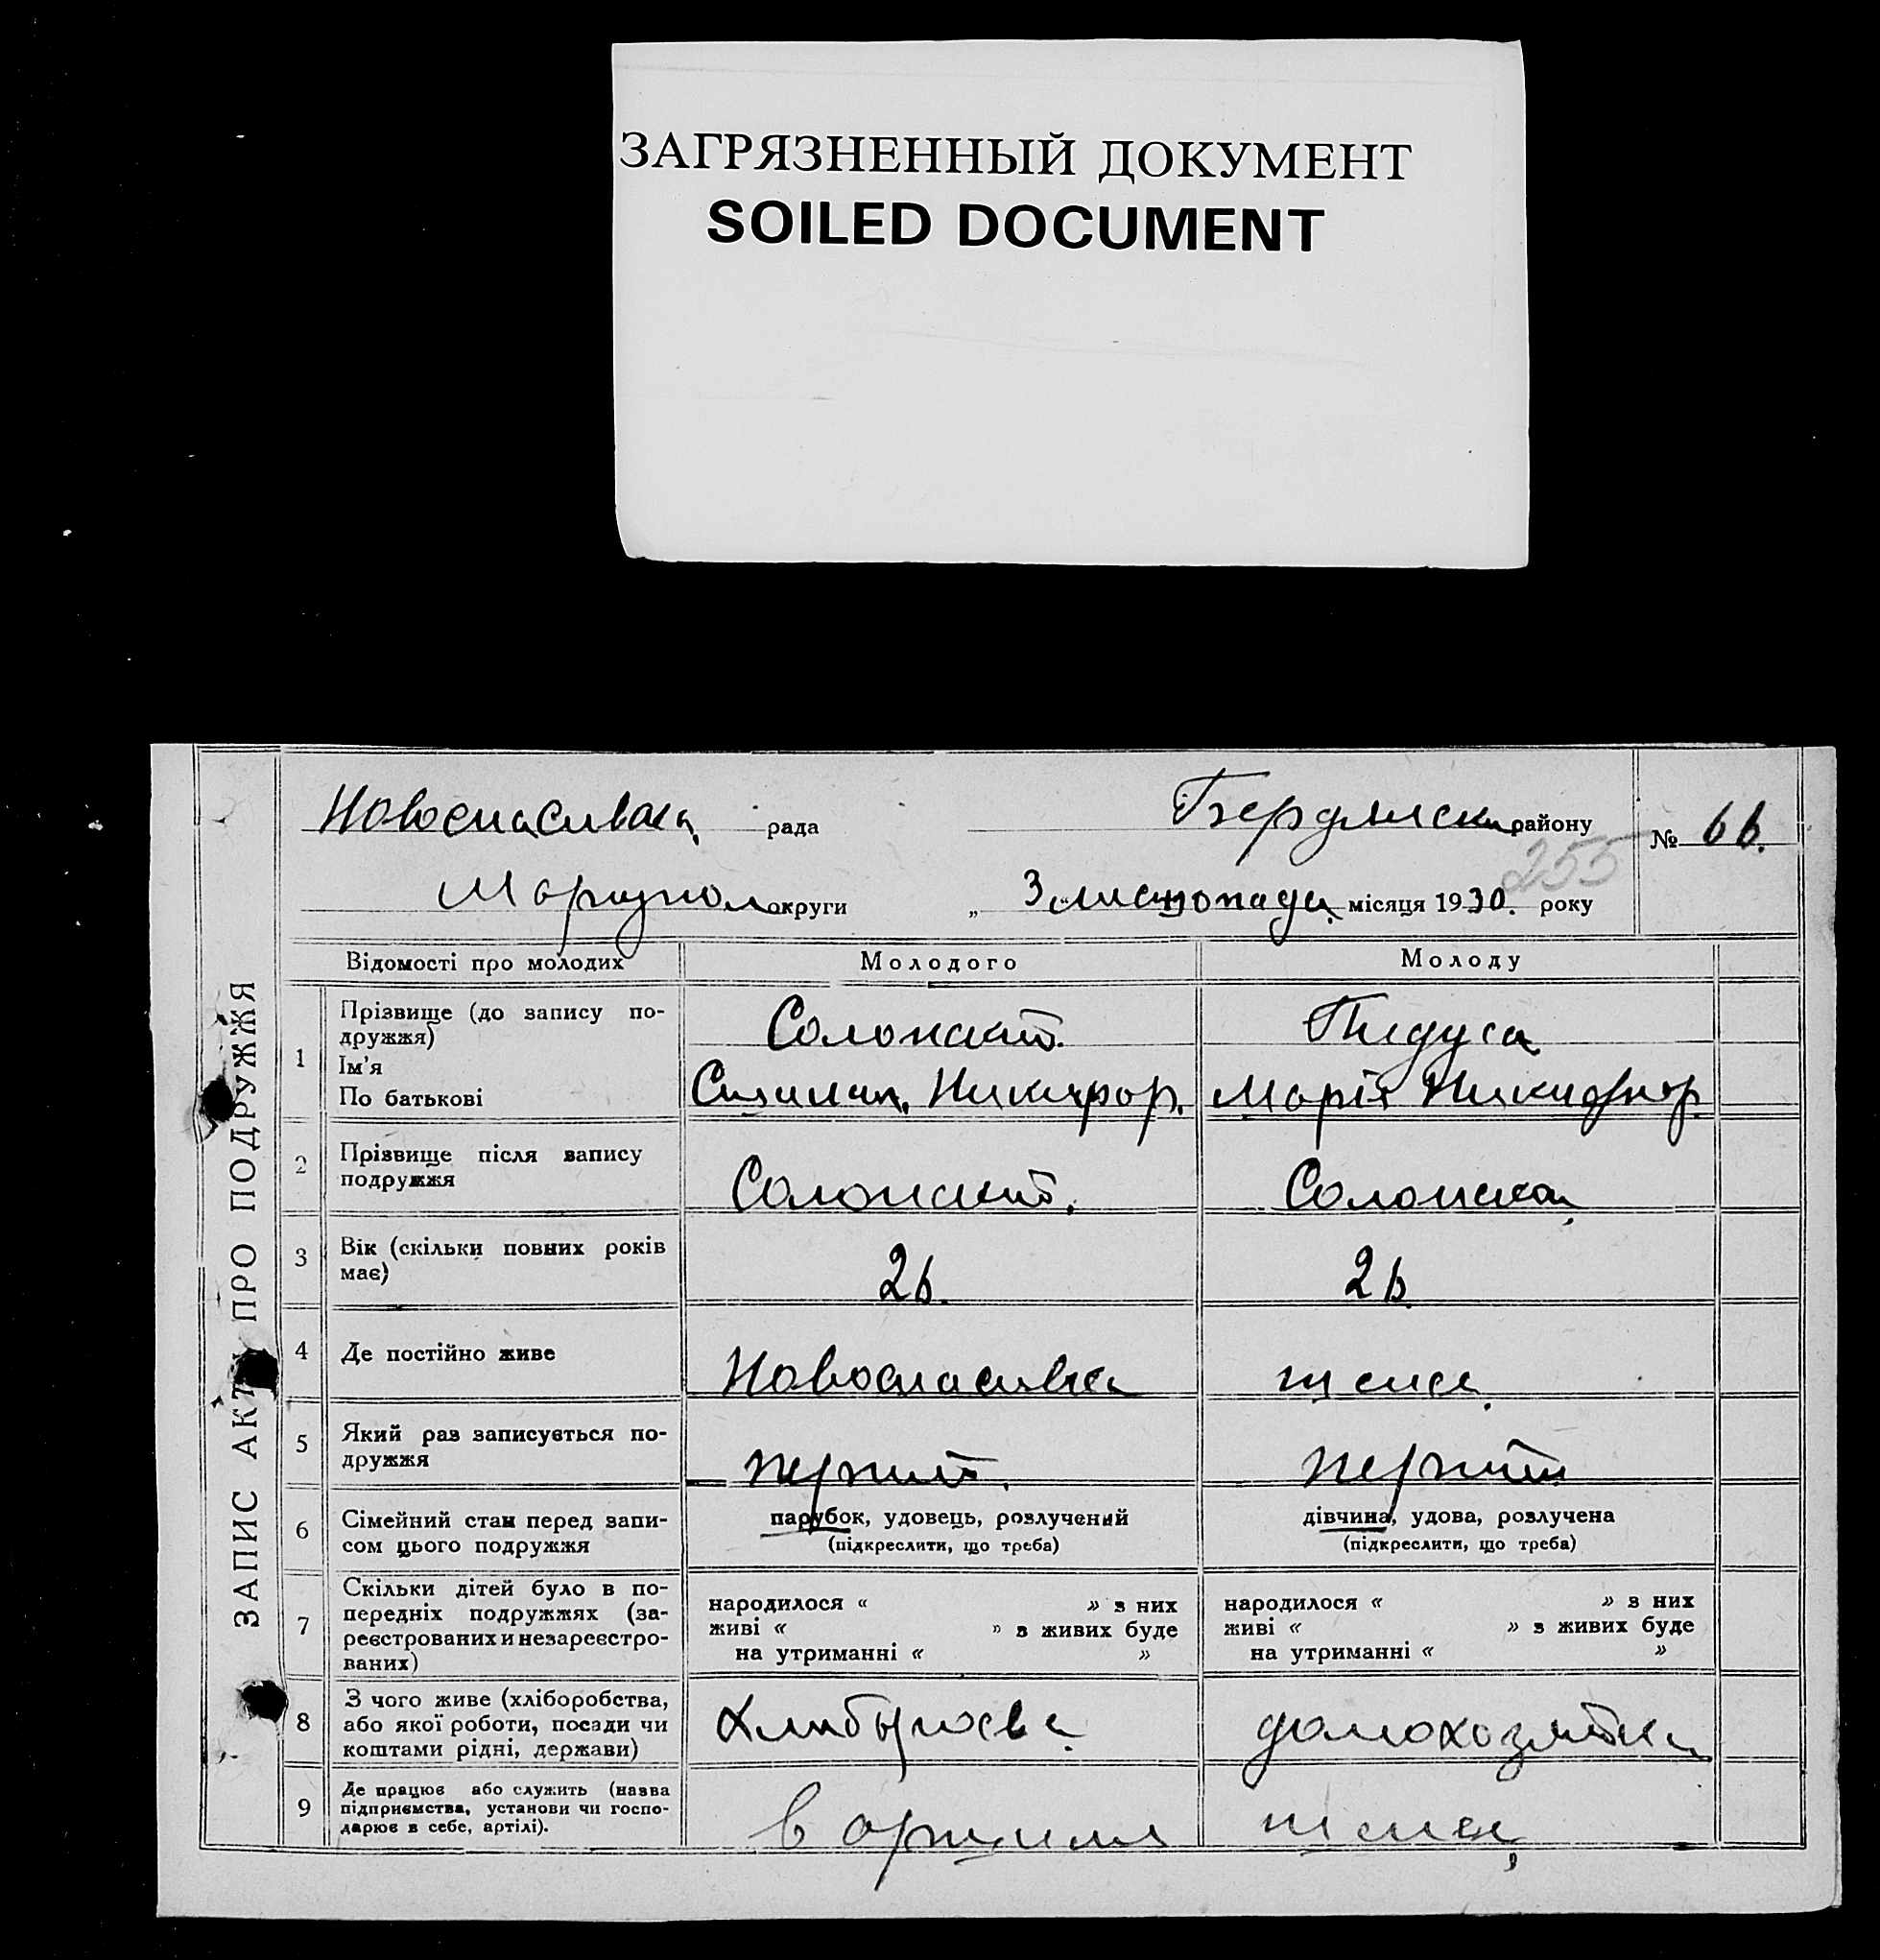 ЗАГРЯЗНЕННЫЙ ДОКУМЕНТ
SOILED DOCUMENT
ЗАПИС АКТУ ПРО ПОДРУЖЖЯ
Новоспасивска рада Бердянск району № 66.
Мариупол округи „ 3 “ листопада місяця 1930. року
255
Відомості про молодих Молодого Молоду
1 Прізвище (до запису по-
дружжя) Солонский
Ім'я
По батькові Никифор. Марія Никифор
2 Прізвище після запису
подружжя Солонский. Солонская
3 Вік (скільки повних років
має) 26. 26.
4 Де постійно живе Новоспасивка
5 Який раз записується по-
дружжя перший. перший
6 Сімейний стан перед запи-
сом цього подружжя парубок, удовець, розлучений дівчина, удова, розлучена
(підкреслити, що треба) (підкреслити, що треба)
7 Скільки дітей було в по-
передніх подружжях (за-
реєстрованих и незареєстро-
ваних) народилося « » з них народилося « » з них
живі « » з живих буде живі « » з живих буде
на утриманні « » на утриманні « »
8 З чого живе (хліборобства,
або якої роботи, посади чи
коштами рідні, держави) домохозяйка
9 Де працює або служить (назва
підприємства, установи чи госпо-
дарює в себе, артілі). в